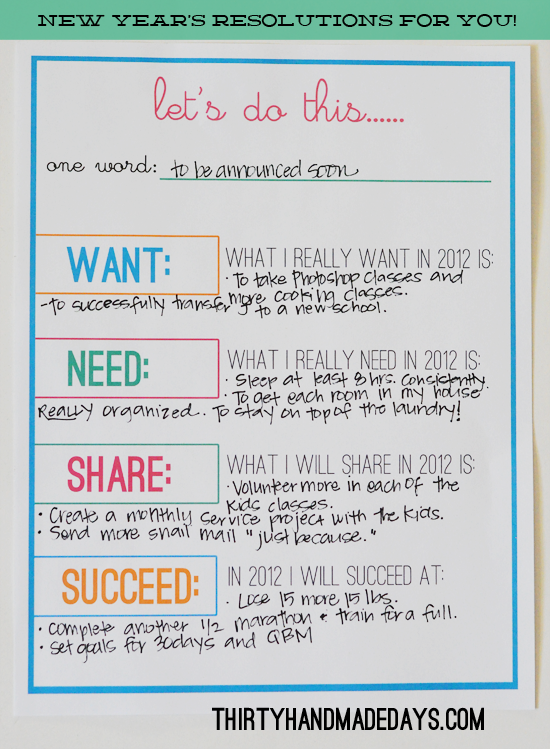 NEW YEAR'S RESOLUTIONS FOR YOU!
let's do this......
one word: to be announced soon
WANT:
WHAT I REALLY WANT IN 2012 IS:
· To take Photoshop classes and
more cooking classes.
- to successfully transfer J to a new school.
NEED:
WHAT I REALLY NEED IN 2012 IS:
· Sleep at least 8 hrs. consistently.
· To get each room in my house
REALLY organized. · To stay on top of the laundry!
SHARE:
WHAT I WILL SHARE IN 2012 IS:
· Volunteer more in each of the
kids classes.
· Create a monthly service project with the kids.
· Send more snail mail "just because."
SUCCEED:
IN 2012 I WILL SUCCEED AT:
· Lose 15 more 15 lbs.
· complete another 1/2 marathon + train for a full.
· set goals for 30days and QBM
THIRTYHANDMADEDAYS.COM